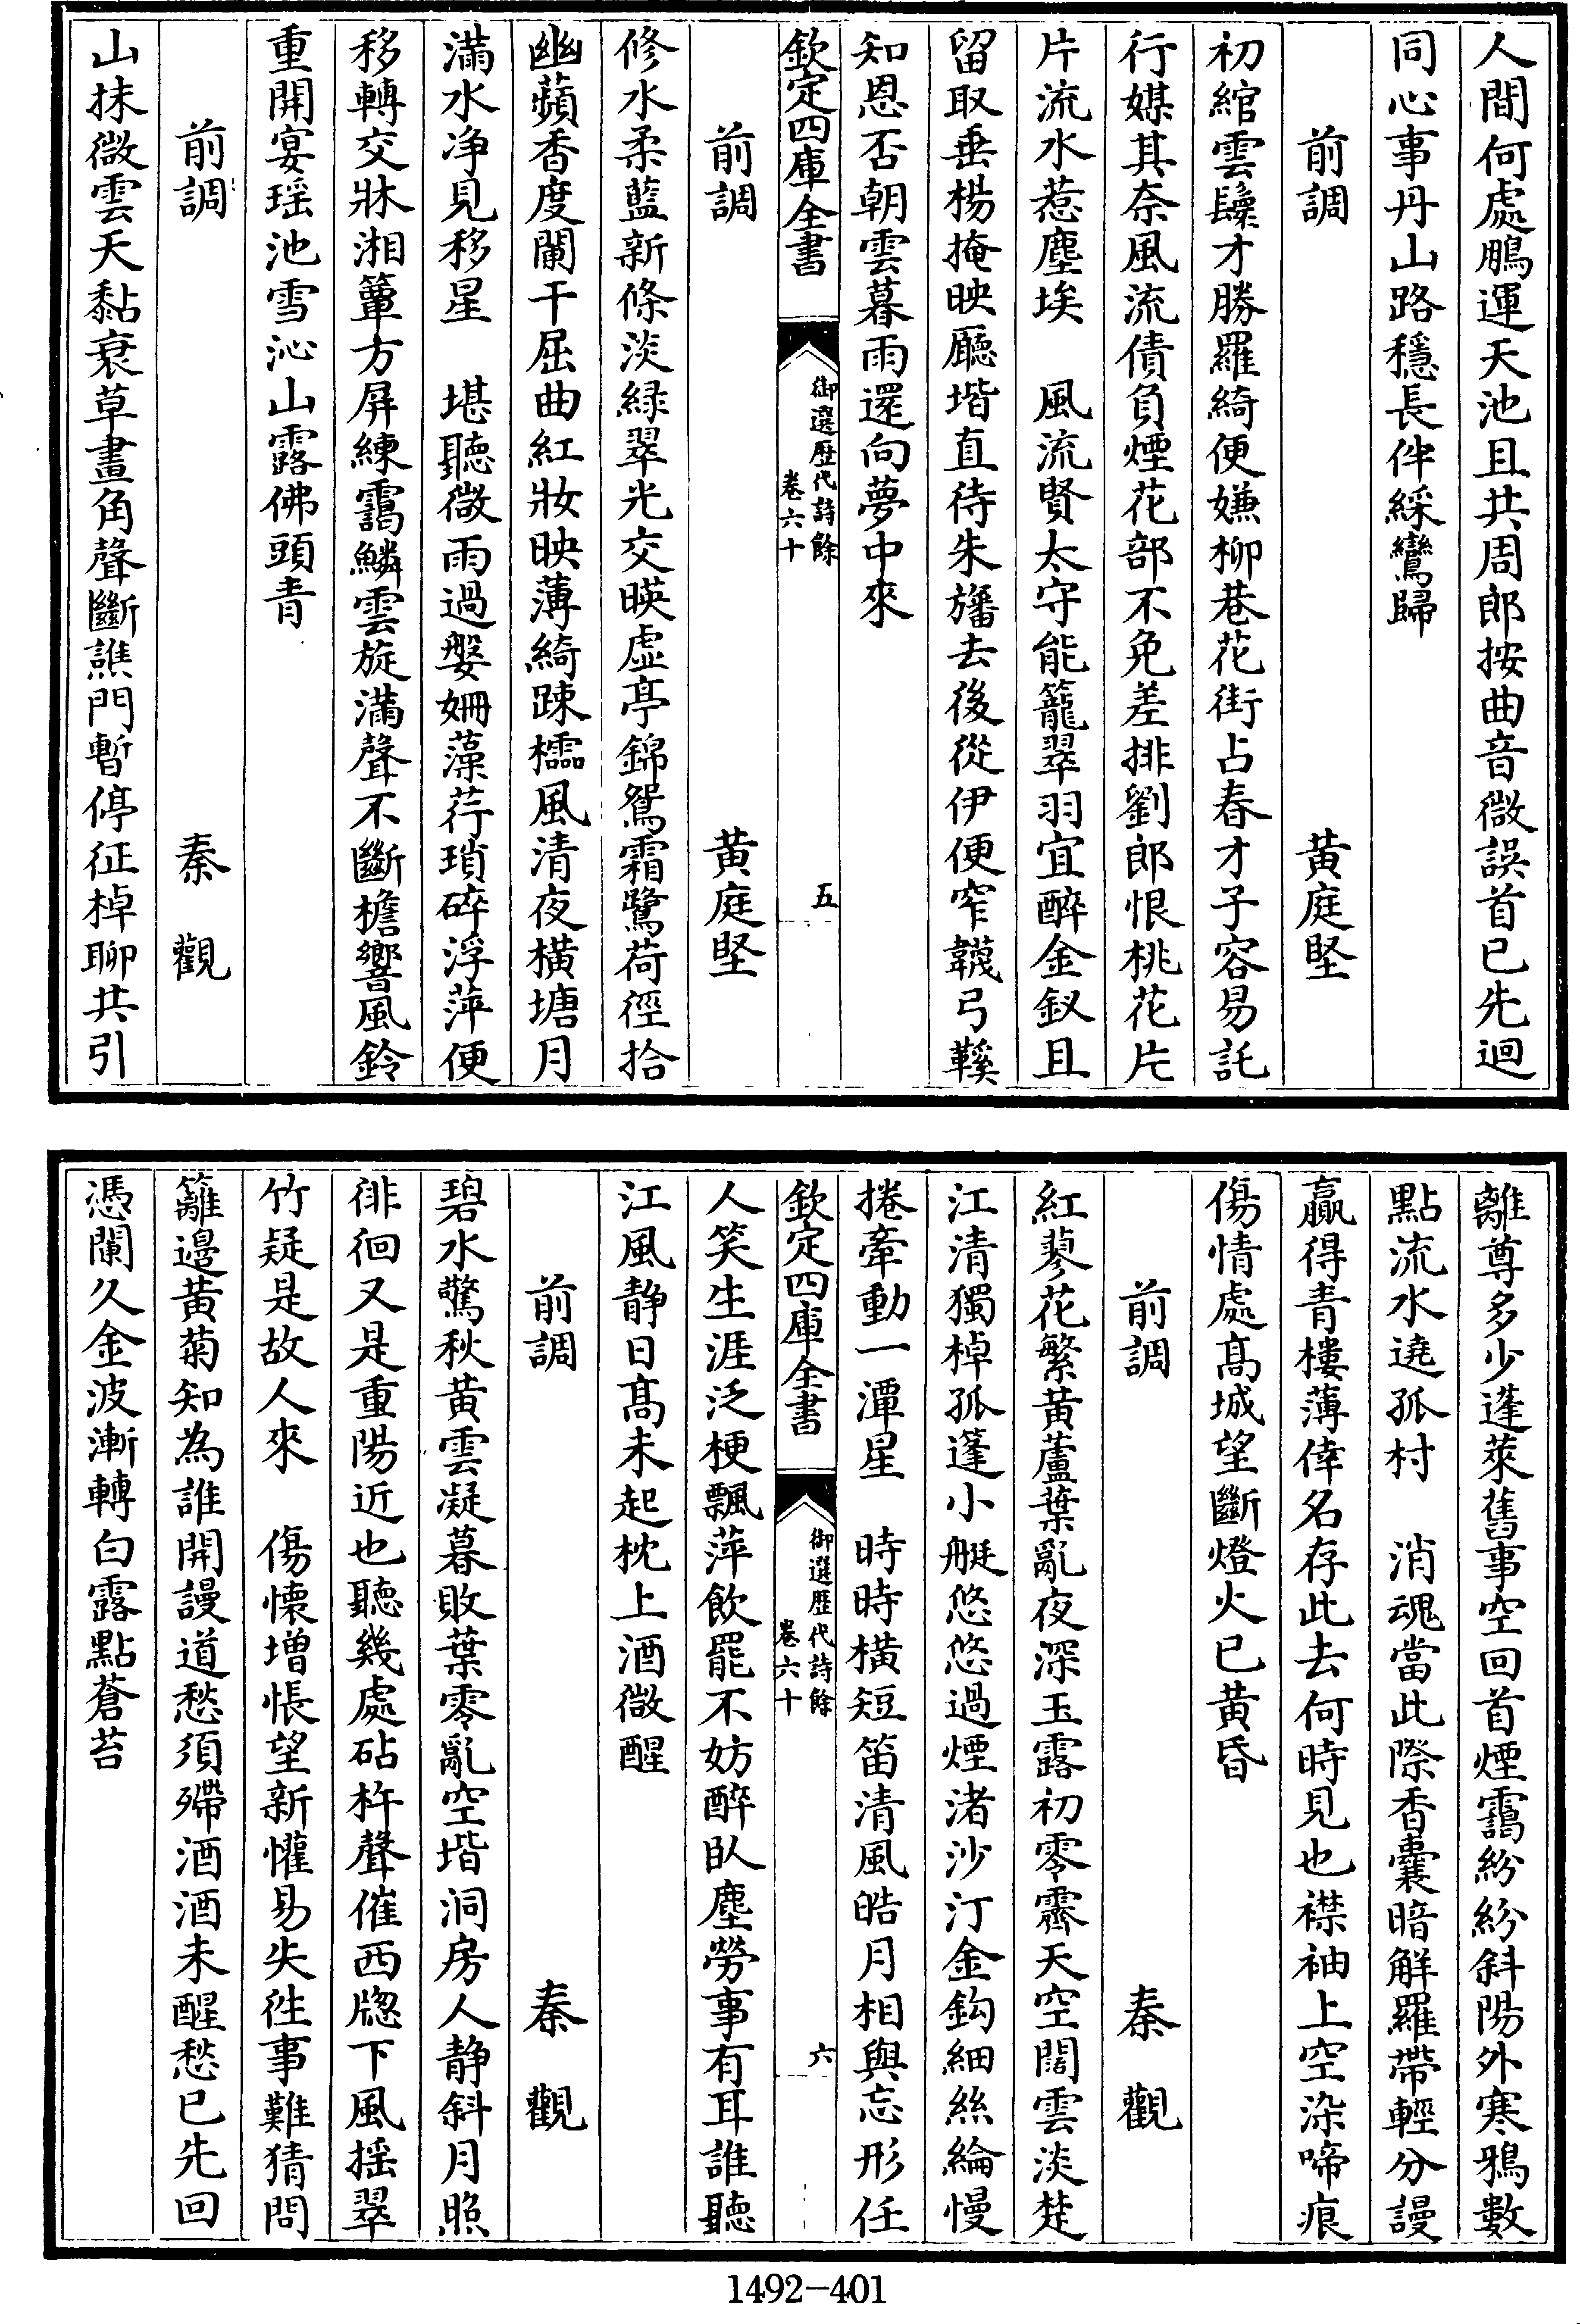 人間何處鵬運天池且共周郎按曲音微誤首已先迴
同心事丹山路穩長伴綵鸞歸
前調　黄庭堅
初綰雲鬟才勝羅綺便嫌柳巷花街占春才子容易託
行媒其奈風流債負煙花部不免差排劉郎恨桃花片
片流水惹塵埃　風流賢太守能籠翠羽宜醉金釵且
留取垂楊掩映廳堦直待朱旛去後從伊便窄韈弓鞵
知恩否朝雲暮雨還向夢中來
欽定四庫全書　御選歷代詩餘　卷六十　五
前調　黄庭堅
修水柔藍新條淡緑翠光交暎虚亭錦鴛霜鷺荷徑拾
幽蘋香度闌干屈曲紅妝映薄綺踈櫺風清夜橫塘月
滿水净見移星　堪聽微雨過媻姍藻荇瑣碎浮萍便
移轉交牀湘簟方屏練靄鱗雲旋滿聲不斷檐響風鈴
重開宴瑶池雪沁山露佛頭青
前調　秦觀
山抹微雲天黏衰草畫角聲斷譙門暫停征棹聊共引
離尊多少蓬萊舊事空回首煙靄紛紛斜陽外寒鴉數
點流水遶孤村　消魂當此際香囊暗解羅帶輕分謾
贏得青樓薄倖名存此去何時見也襟袖上空染啼痕
傷情處髙城望斷燈火已黄昏
前調　秦觀
紅蓼花繁黄蘆葉亂夜深玉露初零霽天空闊雲淡楚
江清獨棹孤篷小艇悠悠過煙渚沙汀金鈎細絲綸慢
捲牽動一潭星　時時橫短笛清風皓月相與忘形任
欽定四庫全書　御選歷代詩餘　卷六十　六
人笑生涯泛梗飄萍飲罷不妨醉臥塵勞事有耳誰聽
江風静日髙未起枕上酒微醒
前調　秦觀
碧水驚秋黄雲凝暮敗葉零亂空堦洞房人静斜月照
徘徊又是重陽近也聽幾處砧杵聲催西牕下風揺翠
竹疑是故人來　傷懷增悵望新懽易失徃事難猜問
籬邊黄菊知為誰開謾道愁須殢酒酒未醒愁已先回
憑闌久金波漸轉白露點蒼苔
1492-401